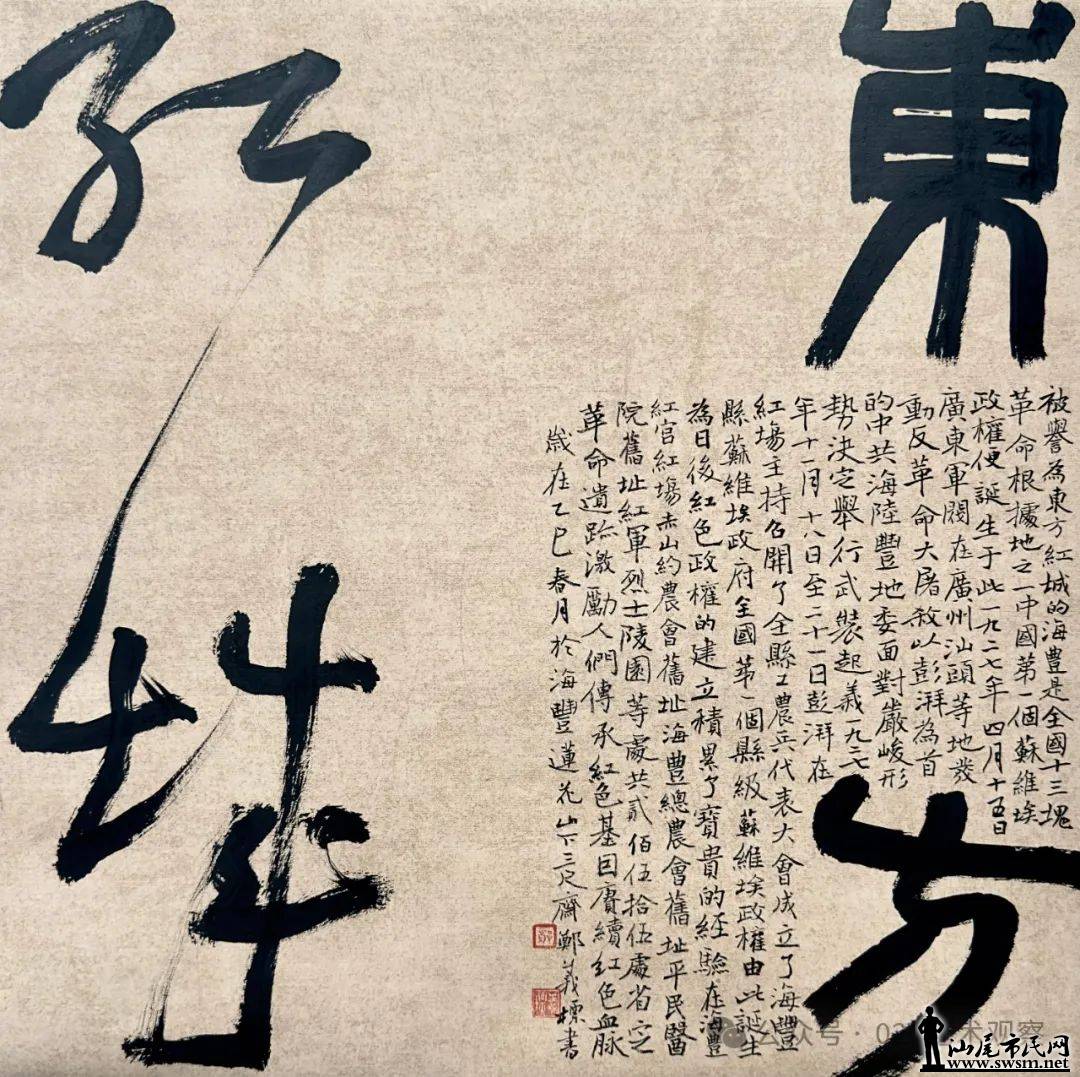 東方
紅城
被譽為東方紅城的海豐是全國十三塊
革命根據地之一中國第一個蘇維埃
政權便誕生于此一九二七年四月十五日
廣東軍閥在廣州汕頭等地發
動反革命大屠殺以彭湃為首
的中共海陸豐地委面對嚴峻形
勢決定舉行武裝起義一九二七
年十一月十八日至二十一日彭湃在
紅場主持召開了全縣工農兵代表大會成立了海豐
縣蘇維埃政府全國第一個縣級蘇維埃政權由此誕生
為日後紅色政權的建立積累了寶貴的經驗在海豐
紅官紅場赤山約農會舊址海豐總農會舊址平民醫
院舊址紅軍烈士陵園等處共貳佰伍拾伍處省定
革命遺跡激勵人們傳承紅色基因賡續紅色血脉
歲在乙巳春月於海豐蓮花山下三尺齋鄭義標書
公众号·03 术观察
汕尾市民网
www.swsm.net